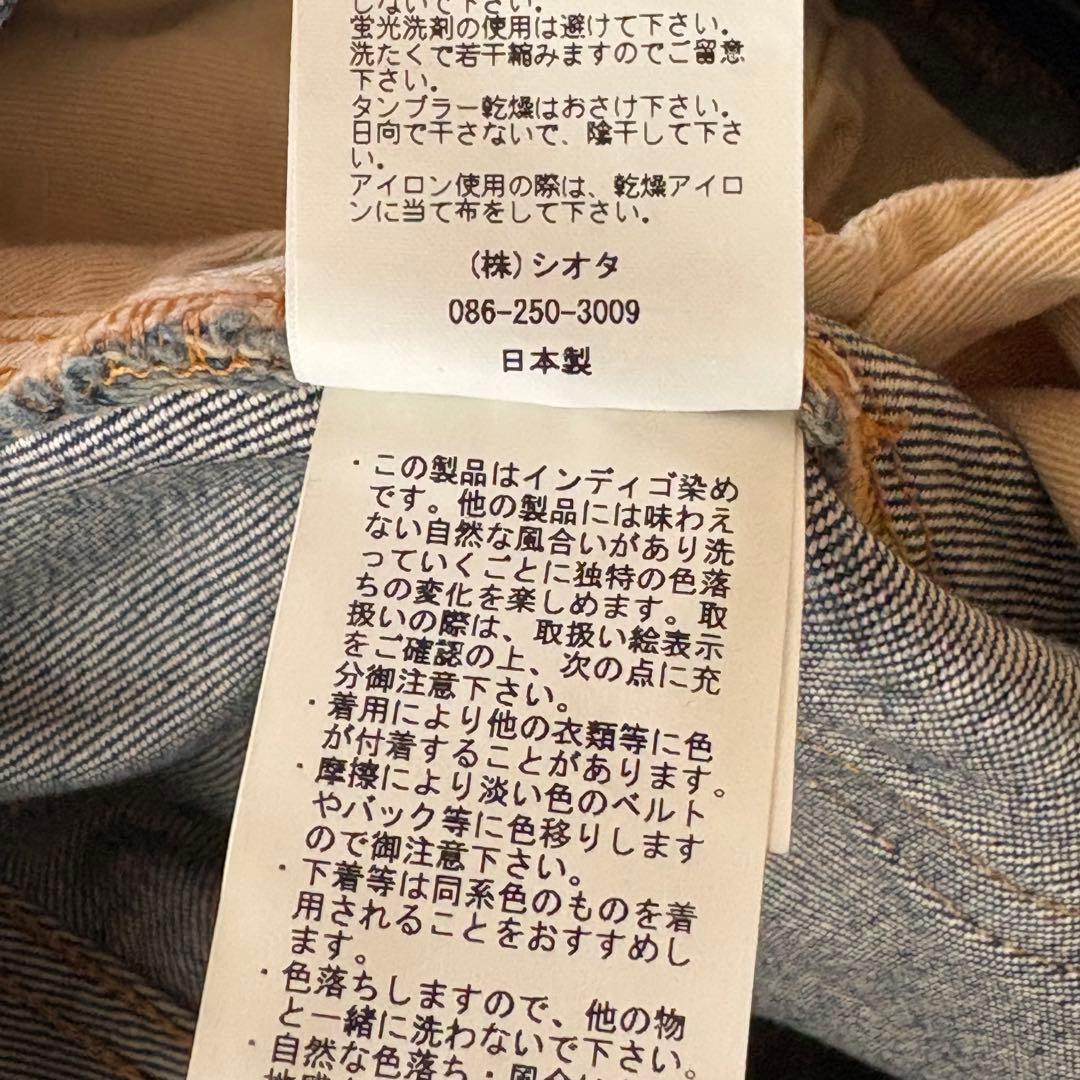 しないで下さい。
蛍光洗剤の使用は避けて下さい。
洗たくで若干縮みますのでご留意
下さい。
タンブラー乾燥はおさけ下さい。
日向で干さないで、陰干して下さ
い。
アイロン使用の際は、乾燥アイロ
ンに当て布をして下さい。
(株)シオタ
086-250-3009
日本製
・この製品はインディゴ染め
です。他の製品には味わえ
ない自然な風合いがあり洗
っていくごとに独特の色落
ちの変化を楽しめます。取
扱いの際は、取扱い絵表示
をご確認の上、次の点に充
分御注意下さい。
・着用により他の衣類等に色
が付着することがあります。
・摩擦により淡い色のベルト
やバック等に色移りします
ので御注意下さい。
・下着等は同系色のものを着
用されることをおすすめし
ます。
・色落ちしますので、他の物
と一緒に洗わないで下さい。
・自然な色落ち・風合